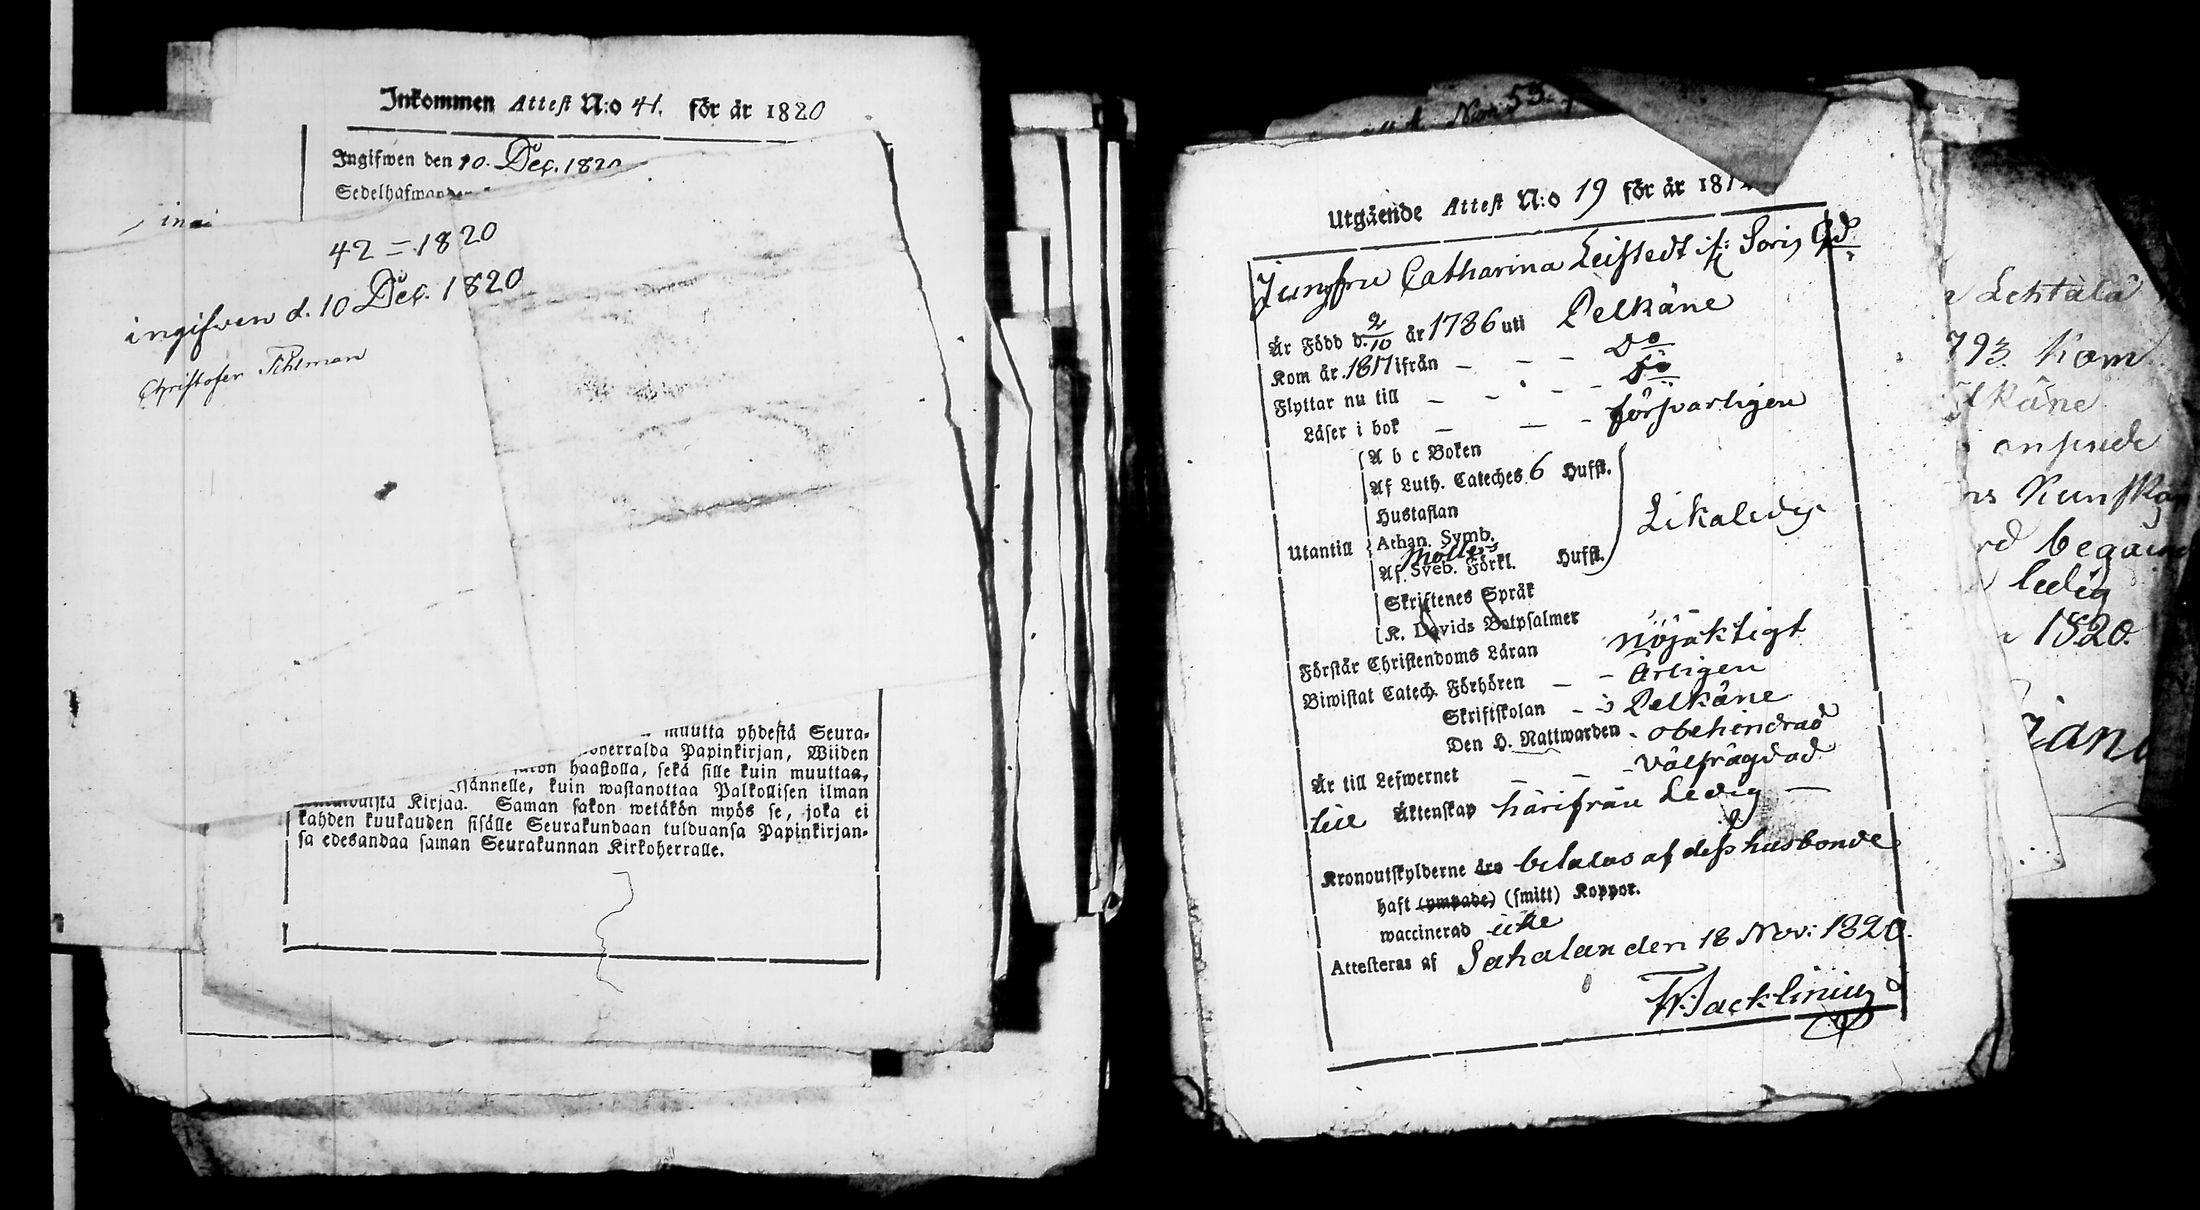 Inkommen Attest N:o 41. för år 1820
Ingifwen den 10. Dec. 1820
42 = 1820
ingifven d. 10 Dec. 1820
Christofer
muutta yhdestä Seura-
Papinkirjan, Wiiden
haastolla, sekä sille kuin muuttaa,
kuin wastanottaa Palkollisen ilman
Kirjaa. Saman sakon wetäkön myös se, joka ei
kahden kuukauden sisälle Seurakundaan tulduansa Papinkirjan-
sa edesandaa saman Seurakunnan Kirkoherralle.
53
Utgående Attest N:o 19 för år 18
Jungfru Catharina Leistedt if: Soris Gd
Är Född d. 2/10 år 1786 uti Pelkäne
Kom år 1817 ifrån — — — Do
Flyttar nu till — — — Do
Läser i bok — — — försvarligen
A b c Boken
Af Luth. Cateches 6 Hufst.
Hustaflan
Utantill Athan. Symb. Likaledes
Möllers
Af Sveb. Förkl. Hufst.
Skriftenes Språk
K. Davids Botpsalmer
Förstår Christendoms Läran nöjaktigt
Biwistat Catech. Förhören — — Årligen
Skriftskolan - i Pelkäne
Den H. Nattwarden - obehindrad
Är till Lefwernet — — — välfrägdad
till Äktenskap härifrån Ledig —
Kronoutskylderne äro betalas af dess husbonde
haft (ympade) (smitt) Koppor.
waccinerad icke
Attesteras af Sahalax den 18 Nov: 1820.
Lehtala
793. Kom
lkäne
Kunskap
ledig
1820.